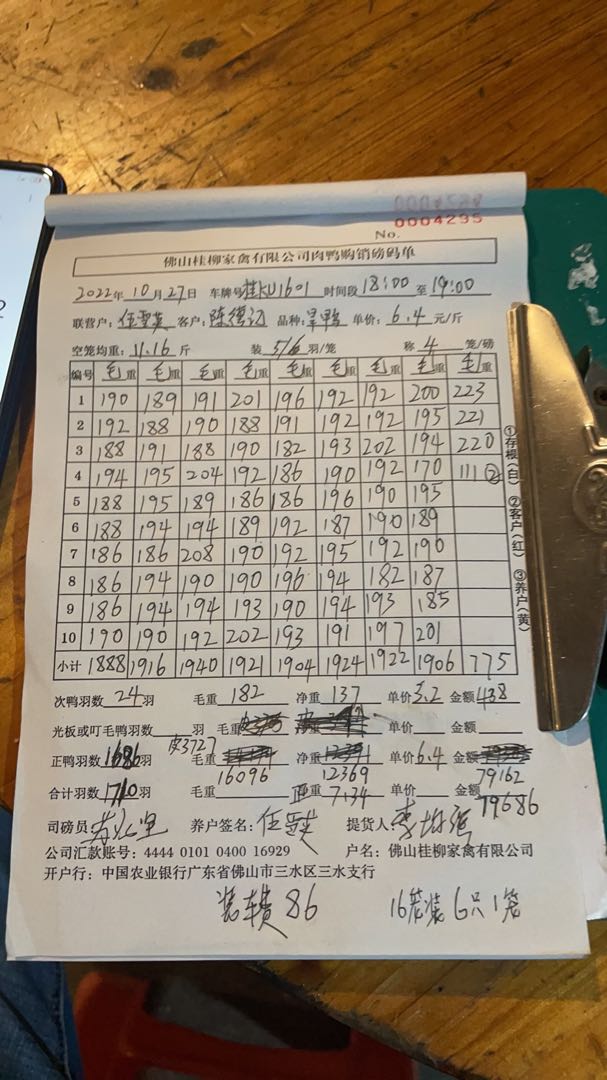 0004295
No.
佛山桂柳家禽有限公司肉鸭购销磅码单
2022年 10月27日 车牌号桂KU1601 时间段18:00至19:00
联营户: 客户: 品种:旱鸭 单价: 6.4 元/斤
空笼均重: 11.16 斤 装 5/6 羽/笼 称 4 笼/磅
编号 毛重 毛重 毛重 毛重 毛重 毛重 毛重 毛重 毛重
1 190 189 191 201 196 192 192 200 223
2 192 188 190 188 191 192 192 195 221
3 188 191 188 190 182 193 202 194 220
4 194 195 204 192 186 190 192 170 111 ②
5 188 195 189 186 186 196 190 195
6 188 194 194 189 192 187 190 189
7 186 186 208 190 192 195 192 190
8 186 194 190 190 196 194 182 187
9 186 194 194 193 190 194 193 185
10 190 190 192 202 193 191 197 201
小计 1888 1916 1940 1921 1904 1924 1922 1906 775
①存根(白) ②客户(红) ③养户(黄)
次鸭羽数 24 羽 毛重 182 净重 137 单价 3.2 金额 438
光板或叮毛鸭羽数 羽 毛重 净重 单价 金额
正鸭羽数 1686 羽 皮3727 毛重 16096 净重 12369 单价 6.4 金额 79162
合计羽数 1710 羽 毛重 净重 7.34 单价 金额 79686
司磅员: 养户签名: 提货人:
公司汇款账号: 4444 0101 0400 16929 户名: 佛山桂柳家禽有限公司
开户行: 中国农业银行广东省佛山市三水区三水支行
装车费 86 16笼装6只1笼